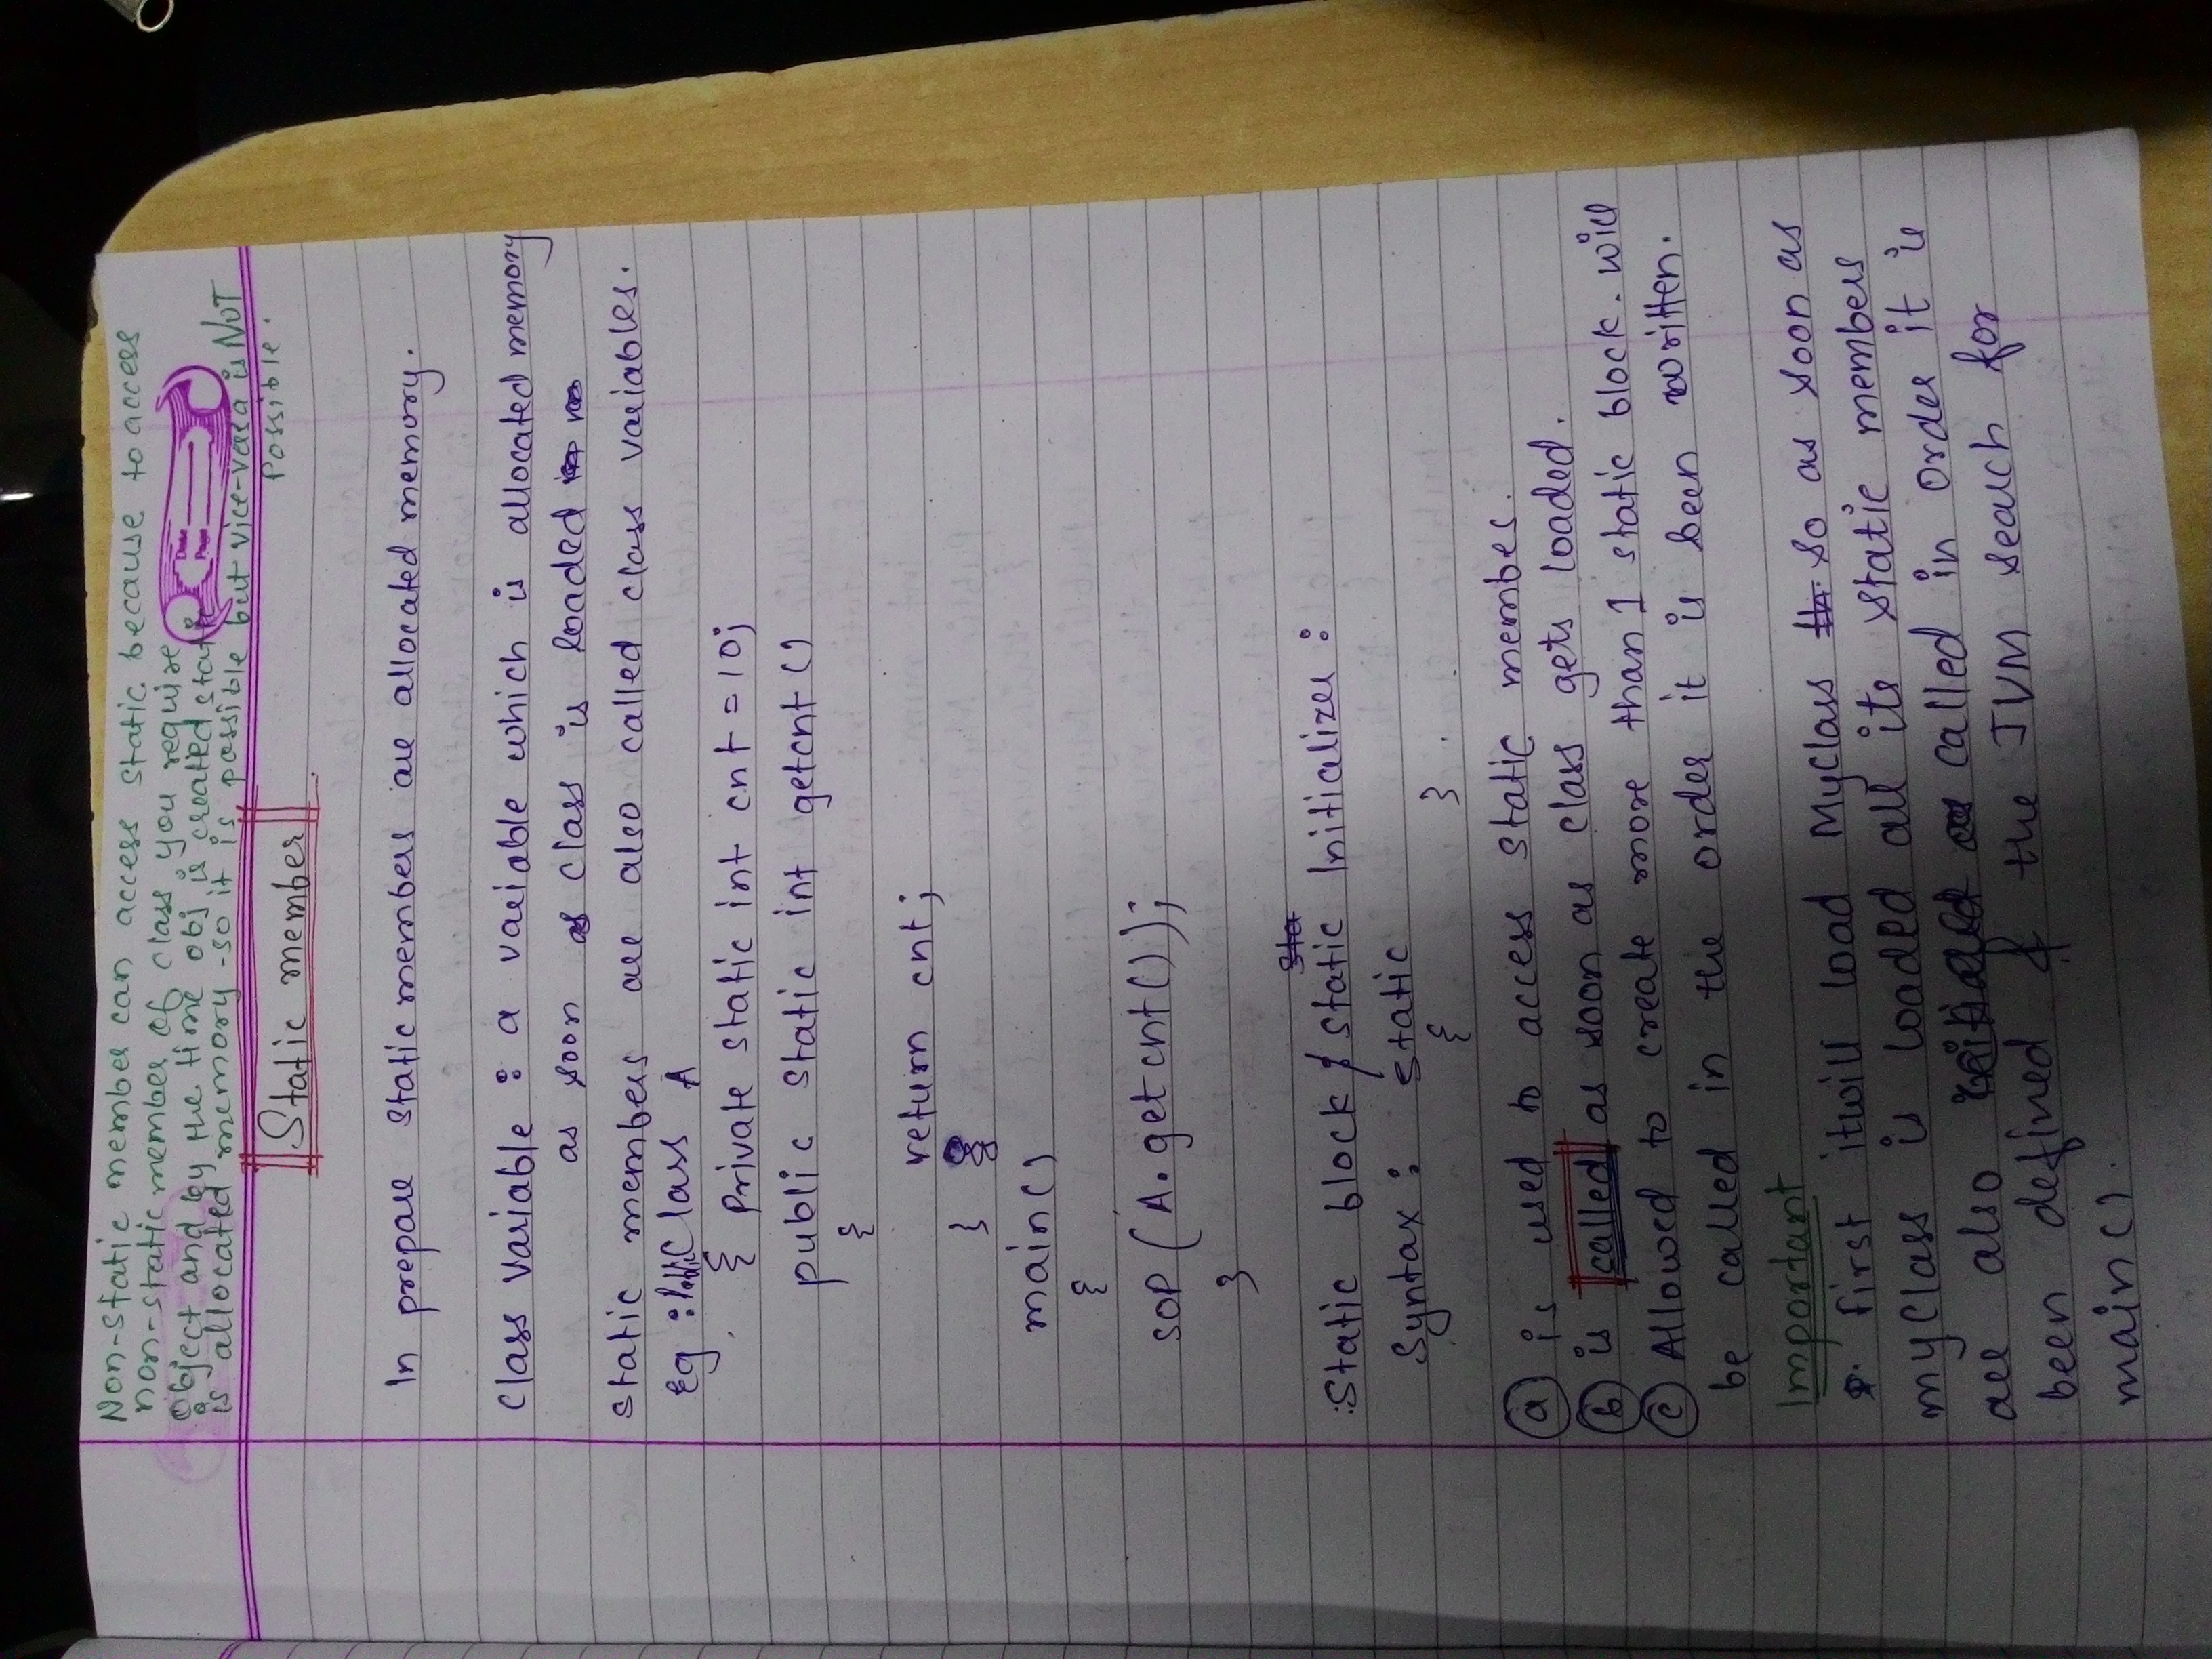 Non-static member can access static because to access
non-static member of class you require
object and by the time obj is created static
is allocated memory - so it is possible but vice-versa is NOT
possible.
Date
Page
Static member
In prepare static members are allocated memory.
Class variable : a variable which is allocated memory
as soon as class is loaded
static members are also called class variables.
Eg : Public Class A
{ Private static int cnt = 10;
public static int getcnt ()
{
return cnt;
}
main()
{
SOP (A.getcnt());
}
Sta
Static block / static Initializer :
Syntax : static
{ }
(a) is used to access static member.
(b) is called as soon as class gets loaded.
(c) Allowed to create more than 1 static block. will
be called in the order it is been written.
Important
first it will load MyClass so as soon as
myClass is loaded all its static members
are also called in order it is
been defined & the JVM search for
main().